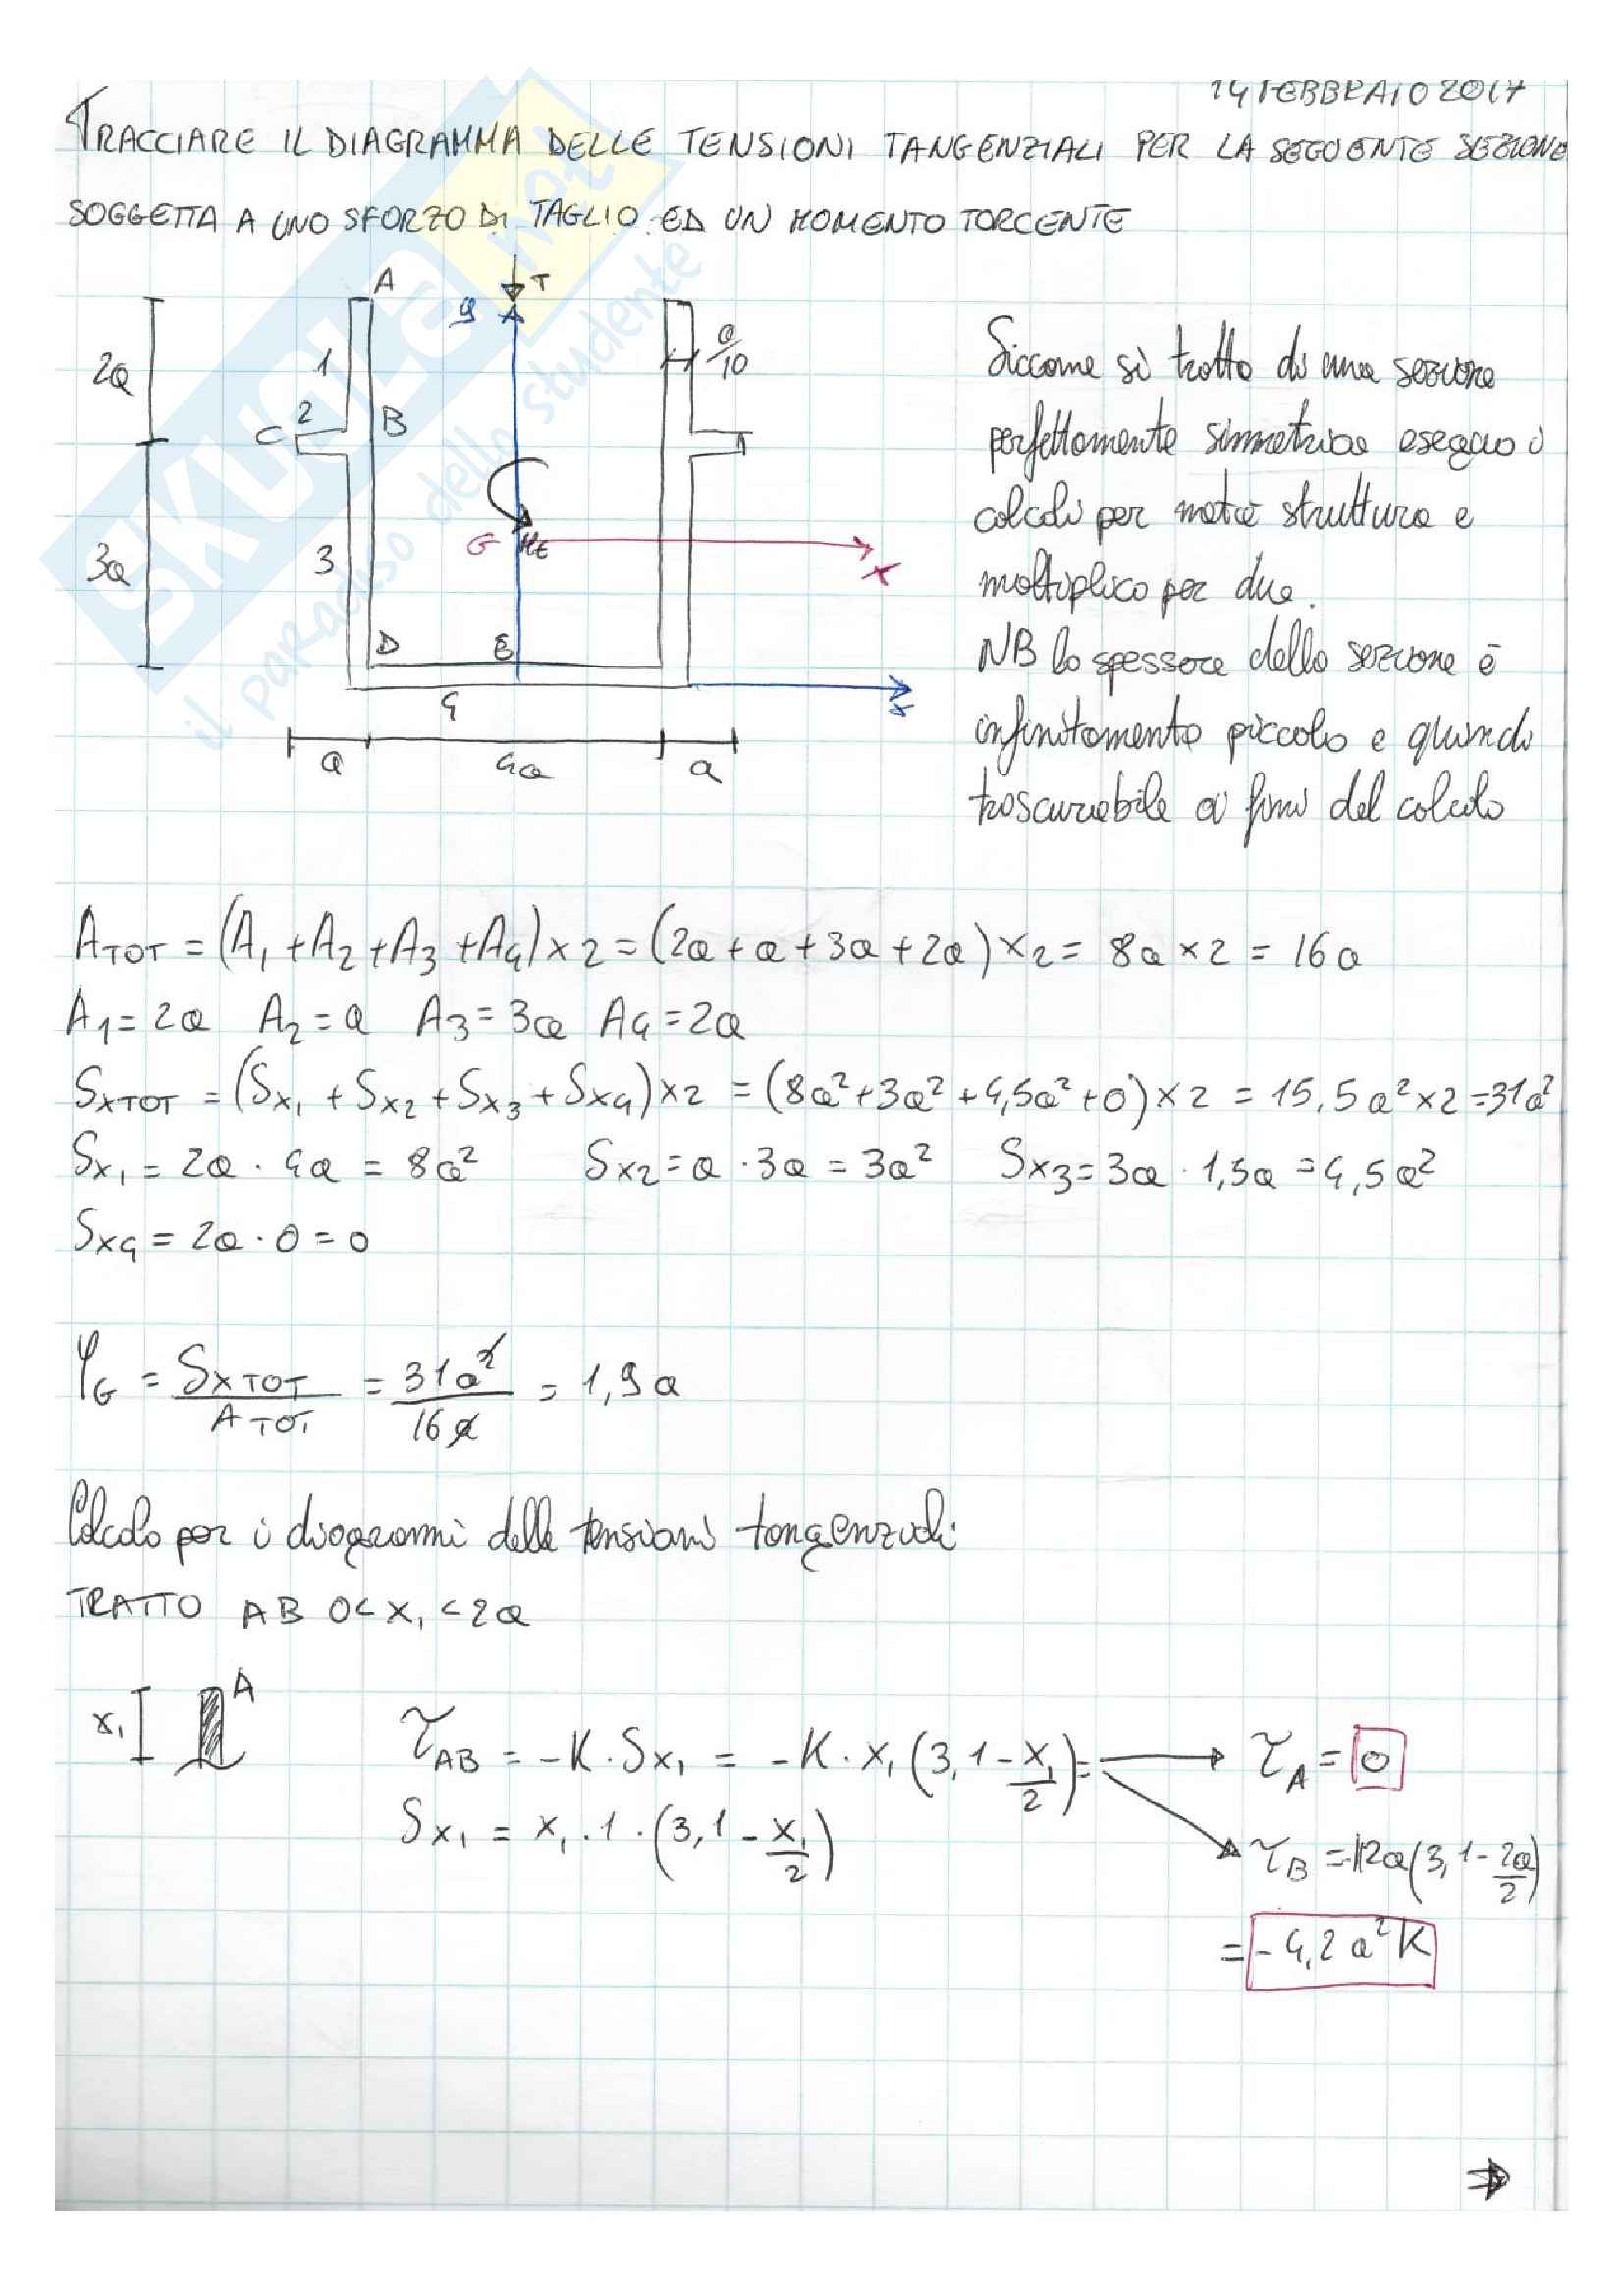 14 FEBBRAIO 2017
TRACCIARE IL DIAGRAMMA DELLE TENSIONI TANGENZIALI PER LA SEGUENTE SEZIONE
SOGGETTA A UNO SFORZO DI TAGLIO ED UN MOMENTO TORCENTE
SKUOLA.net
il paradiso dello studente
A
T
y
2a
1
a/10
2
C
B
G
Mt
x
3a
3
D
E
4
x
a
4a
a
Siccome si tratta di una sezione
perfettamente simmetrica eseguo i
calcoli per metà struttura e
moltiplico per due.
NB lo spessore della sezione è
infinitamente piccolo e quindi
trascurabile ai fini del calcolo
A TOT = (A1 + A2 + A3 + A4) x 2 = (2a + a + 3a + 2a) x 2 = 8a x 2 = 16a
A1 = 2a A2 = a A3 = 3a A4 = 2a
Sx TOT = (Sx1 + Sx2 + Sx3 + Sx4) x 2 = (8a² + 3a² + 4,5a² + 0) x 2 = 15,5a² x 2 = 31a²
Sx1 = 2a · 4a = 8a² Sx2 = a · 3a = 3a² Sx3 = 3a · 1,5a = 4,5a²
Sx4 = 2a · 0 = 0
YG = Sx TOT / A TOT = 31a² / 16a = 1,9a
Calcolo per i diagrammi delle tensioni tangenziali:
TRATTO AB 0 < x1 < 2a
x1
A
τAB = -K · Sx1 = -K · x1 (3,1 - x1/2) = τA = 0
Sx1 = x1 · 1 · (3,1 - x1/2)
τB = -K2a (3,1 - 2a/2)
= -4,2 a² K